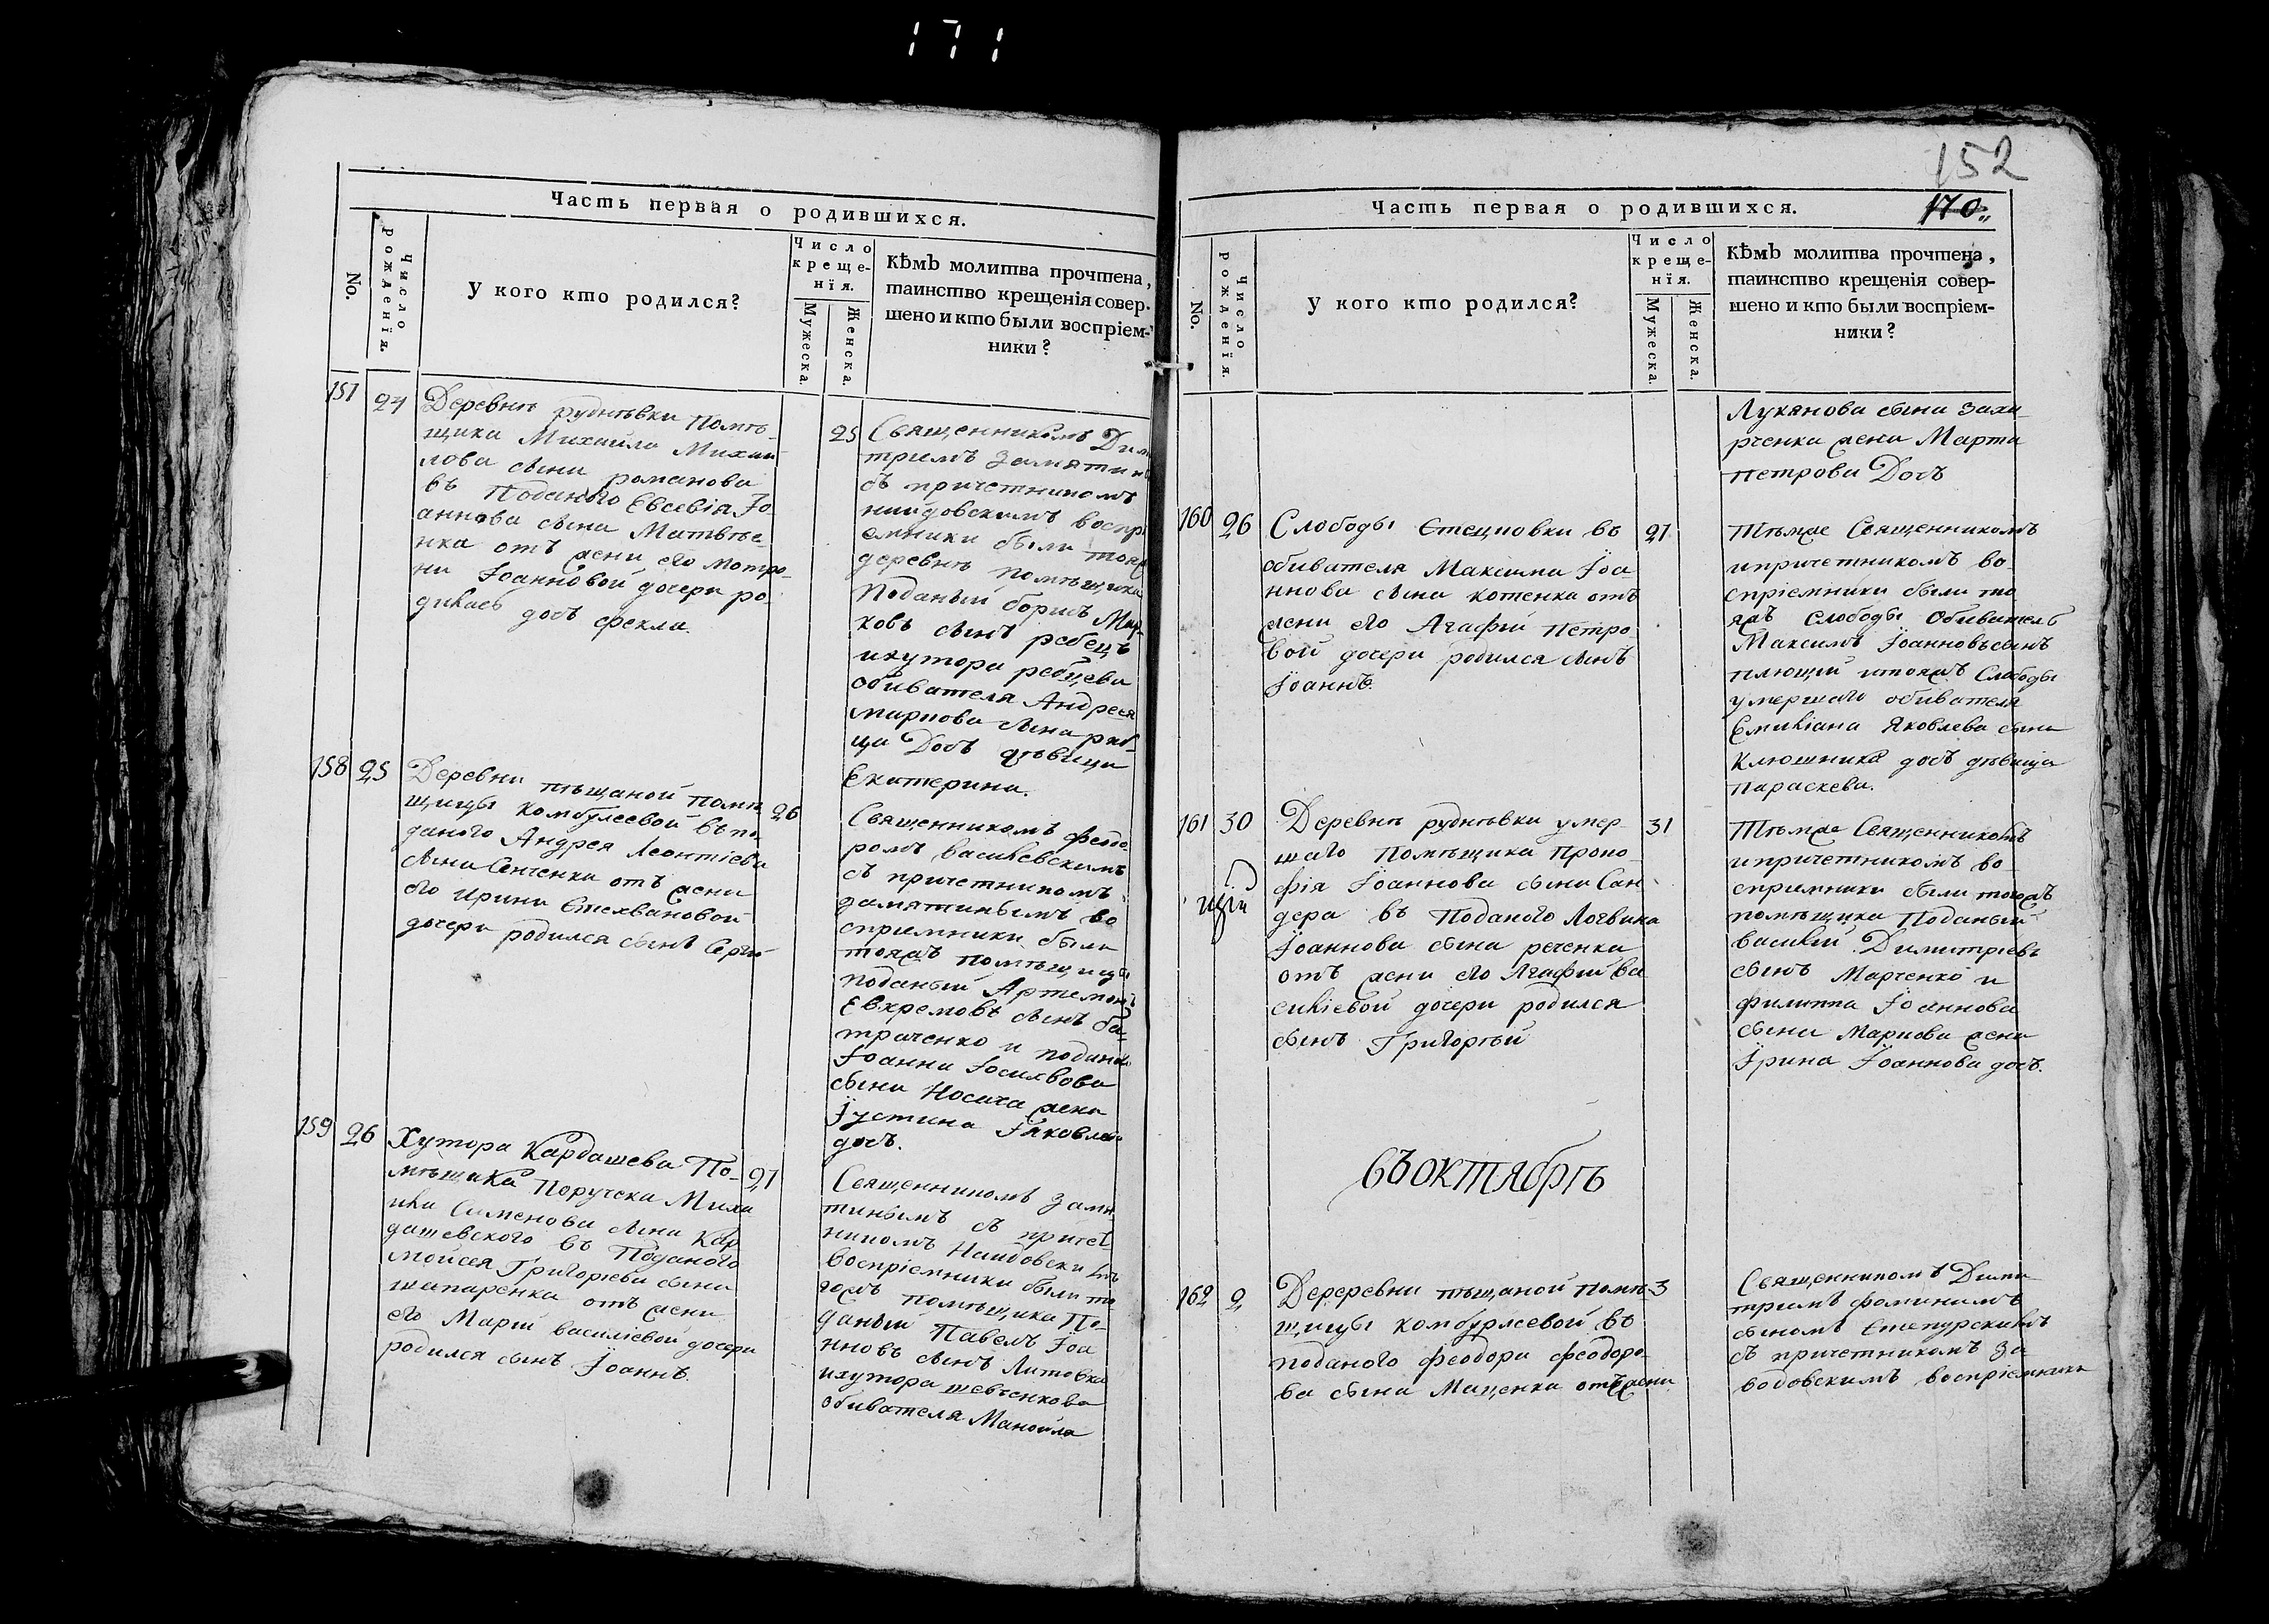 171
Часть первая о родившихся.
No.
Число рожденїя.
У кого кто родился?
Число
креще-
нїя.
Мужеска.
Женска.
Кѣмъ молитва прочтена,
таинство крещенія совер-
шено и кто были воспріем-
ники?
157 24 Деревнѣ руднѣвки Помѣ-
щика Михаила Михаи
лова сына романова
въ Поданого Евсевія Іо-
аннова сына Матвѣе-
нка отъ жени его мотро-
ни Іоанновой дочери ро-
дилась дочъ фекла.
25 Священникомъ Дим
тріемъ Замятин
съ причетникомъ
воспрі
емники были тояж
деревнѣ помѣщика
Поданый борисъ Мар-
ковъ сынъ ребецъ
ихутора ребцева
обивателя Андрея
маркова сына реб-
ца Дочъ дѣвица
Екатерина.
158 25 Деревни пѣщаной помѣ
щицы комбурлеевой въ по
даного Андрея Леонтіева
сына Сенченка отъ жени
его ирини Стехвановой
дочери родился сынъ Сергій
26
Священникомъ феодо
ромъ василевскимъ
съ причетникомъ
замятинымъ во
спріемники были
тояжъ помѣщицы
поданый Артемонъ
Евхремовъ сынъ ба-
траченко и подана
Іоанна Іосиѳова
сына Носача жена
Іустина Іяковлева
дочъ.
159 26 Хутора Кардашева По-
мѣщика Поручека Миха
ила Сименова сына Кар
дашевского въ Поданого
мойсея Григоріева сына
шапаренка отъ жени
его Маріи василіевой дочери
родился сынъ Іоаннъ.
27
Священникомъ Замя
тинымъ съ причет
никомъ Наидовскимъ
воспріемники были то
гожъ помѣщика По-
даный Павелъ Іоа
нновъ сынъ Литовка
ихутора шевченкова
обивателя Манойла
152
170
Часть первая о родившихся.
No.
Число рожденїя.
У кого кто родился?
Число
креще-
нїя.
Мужеска.
Женска.
Кѣмъ молитва прочтена,
таинство крещенія совер-
шено и кто были воспріем-
ники?
Луканова сына заха
рченка жена Марта
петрова Дочъ
160 26 Слободы Стецповки въ
обивателя Максима Іоа-
ннова сына котенка отъ
жени его Агафіи петро
вой дочери родился сынъ
Іоаннъ.
27
Тѣмже Священникомъ
ипричетникомъ во
спріемники были то
яжъ Слободы Обиватель
Максимъ Іоанновъ сынъ
плющій итояжъ Слободы
умершаго обивателя
Емиліана Яковлева сына
Клюшника дочъ дѣвица
параскева.
161 30 Деревнѣ руднѣвки умер-
шаго Помѣщика Проко-
фія Іоаннова сына Сан
дера въ Поданого Логвина
Іоаннова сына реченка
отъ жени его Агафіи ва
силіевой дочери родился
сынъ Григорій
31
Тѣмже Священникомъ
ипричетникомъ во
спріемники были тогожъ
помѣщика Поданый
василій Димитріевъ
сынъ Марченко и
филиппа Іоаннова
сына Маркова жена
Ірина Іоаннова дочъ.
въ октябрѣ
162 2 Дереревни пѣщаной помѣ-
щицы комбурлеевой въ
поданого феодора феодоро-
ва сына Маценка отъ жени
3
Священникомъ Дими
тріемъ фоминимъ
сыномъ Степурскимъ
съ причетникомъ За
водовскимъ воспріемники